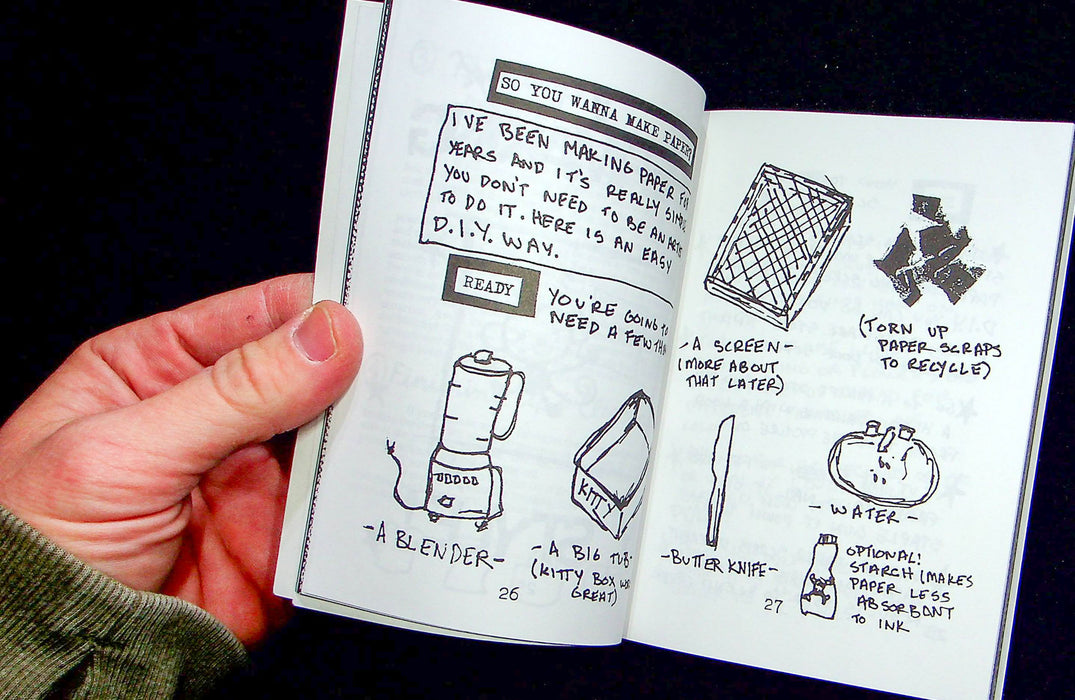 SO YOU WANNA MAKE PAPER?
I'VE BEEN MAKING PAPER
YEARS AND IT'S REALLY
YOU DON'T NEED TO BE AN
TO DO IT. HERE IS AN EASY
D.I.Y. WAY.
READY
YOU'RE GOING TO
NEED A FEW
-A BLENDER-
KITTY
-A BIG TUB-
(KITTY BOX
GREAT)
26
-A SCREEN-
(MORE ABOUT
THAT LATER)
(TORN UP
PAPER SCRAPS
TO RECYCLE)
-BUTTER KNIFE-
-WATER-
OPTIONAL!
STARCH (MAKES
PAPER LESS
ABSORBANT
TO INK
27